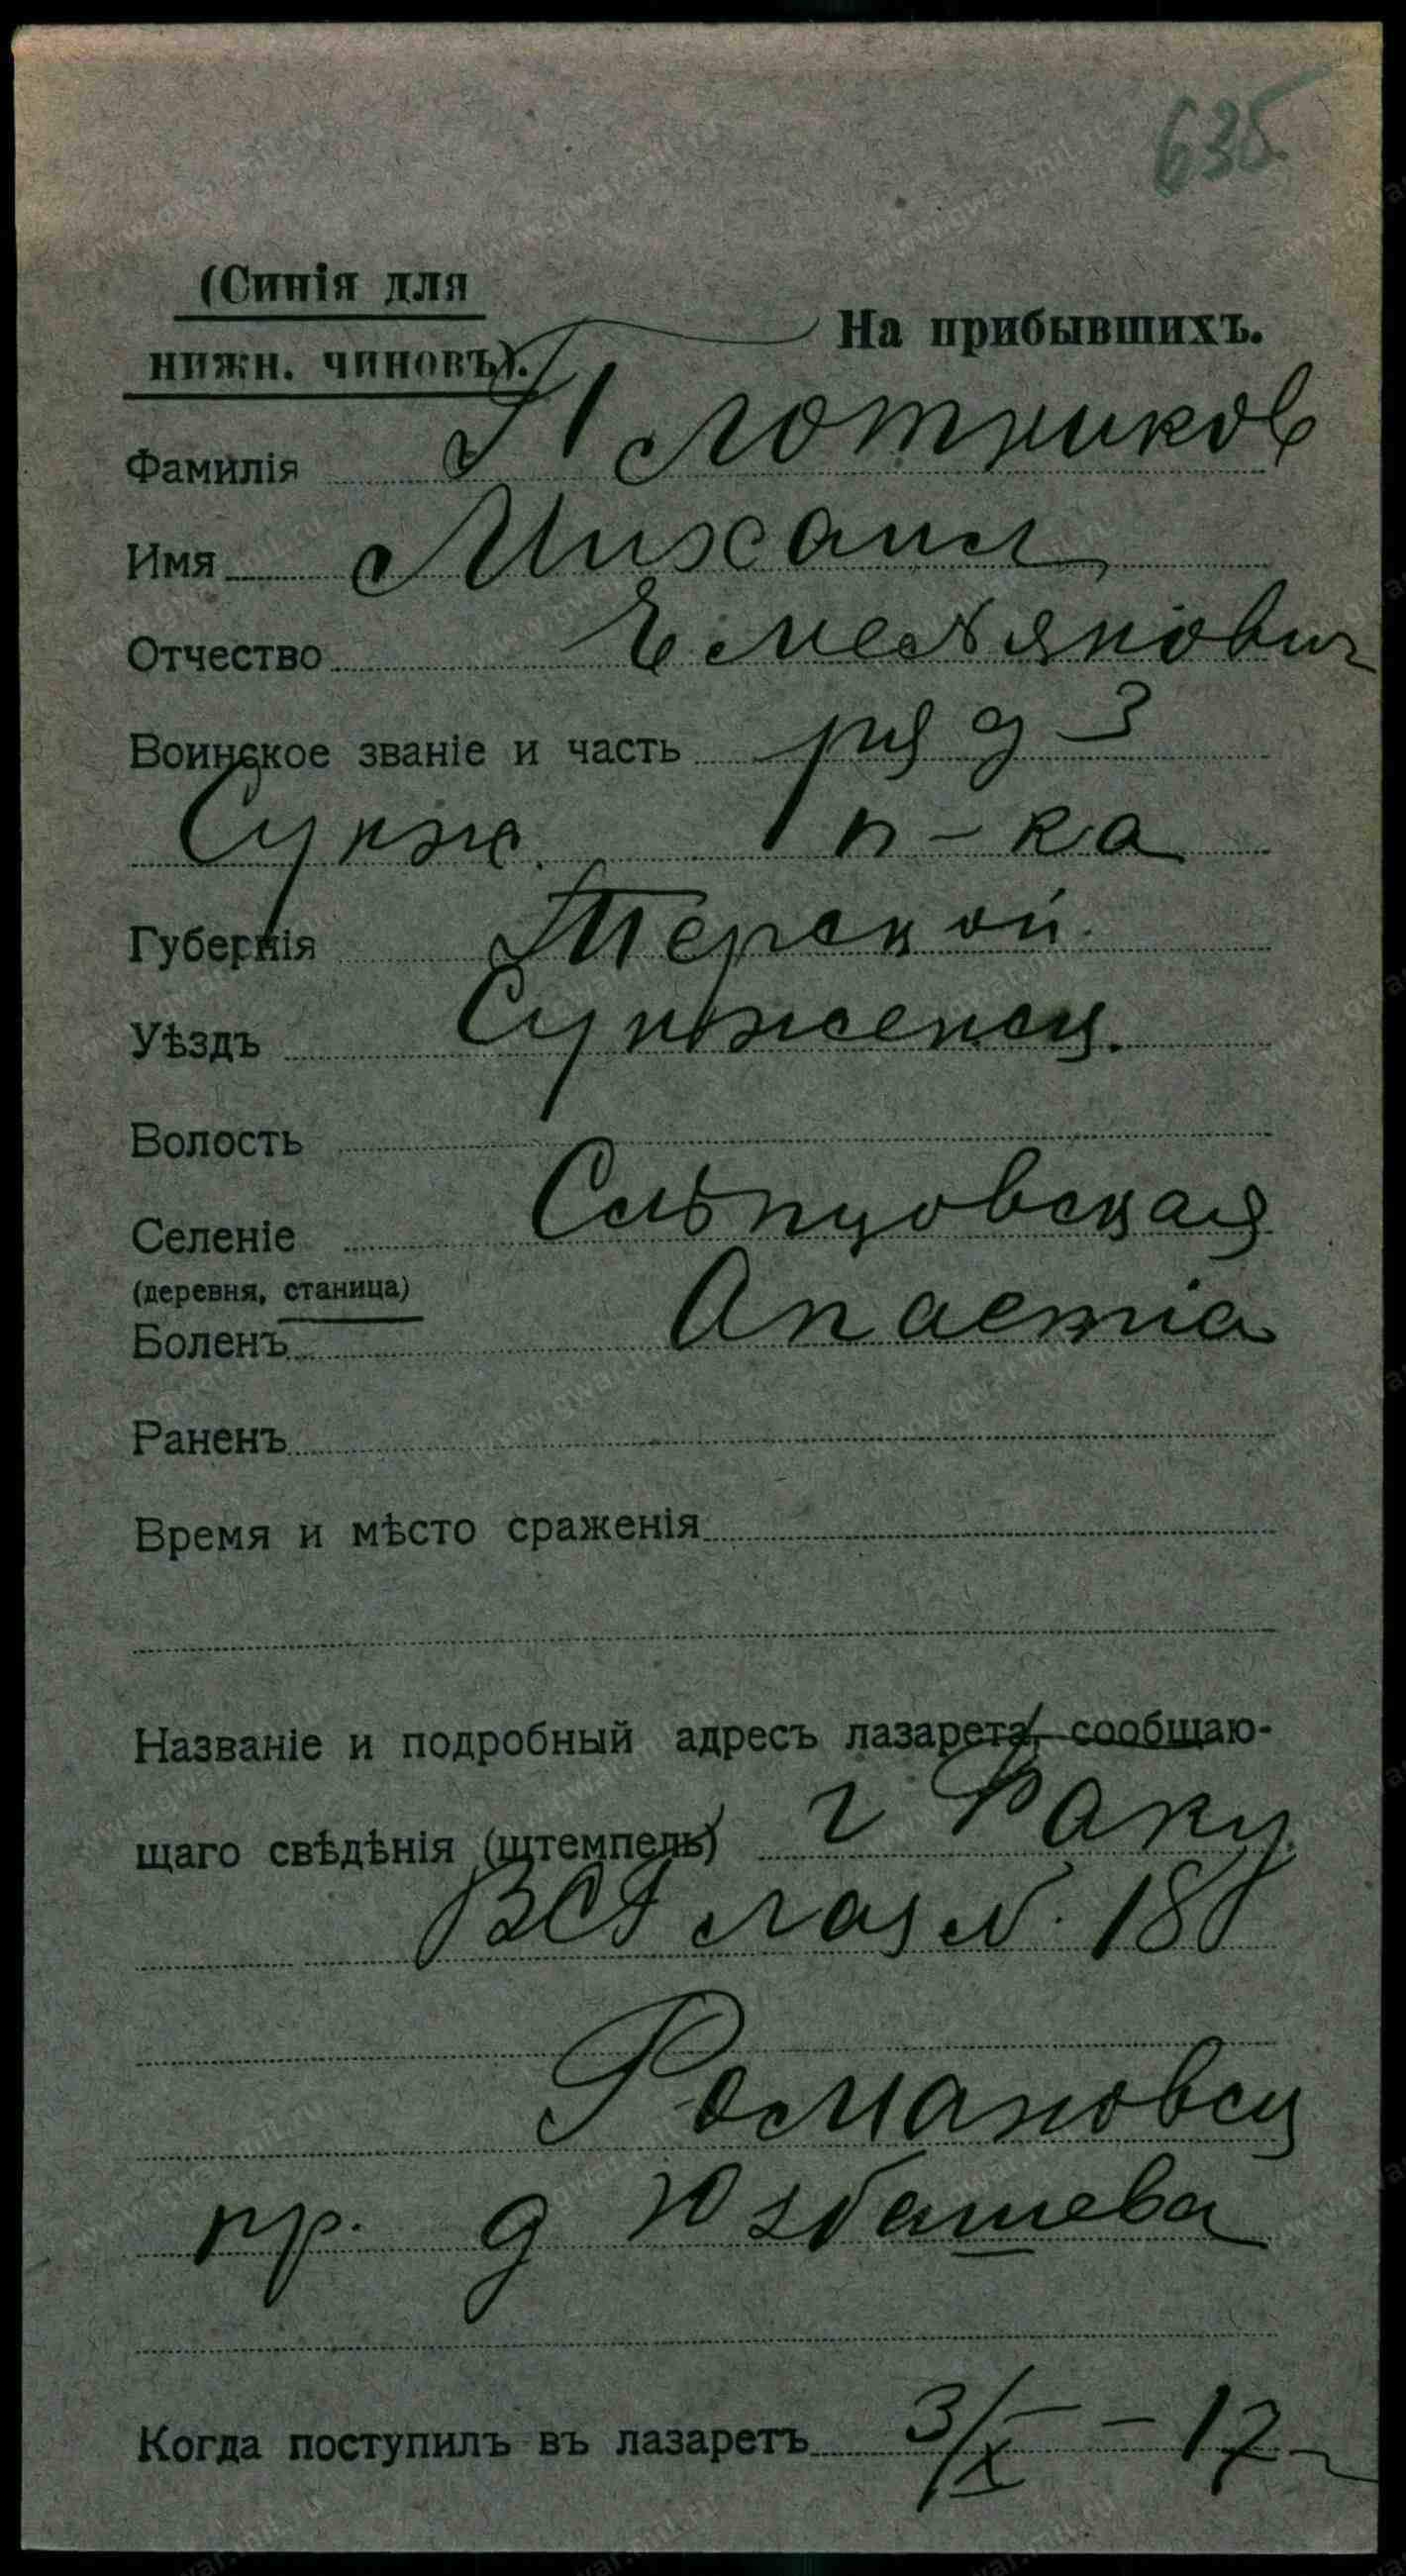 635
(Синія для
нижн. чиновъ).
На прибывшихъ.
Фамилія Плотников
Имя Михаил
Отчество Емельянович
Воинское званіе и часть ряд 3
Сунж. п-ка
Губернія Терской
Уѣздъ Сунженск.
Волость
Селеніе Слѣпцовская
(деревня, станица)
Боленъ Anaemia
Раненъ
Время и мѣсто сраженія
Названіе и подробный адресъ лазарета, сообщаю-
щаго свѣдѣнія (штемпель) г Баку
ВСГ лаз N. 188
Романовск
пр. д Юзбашева
Когда поступилъ въ лазаретъ 3/X - 17